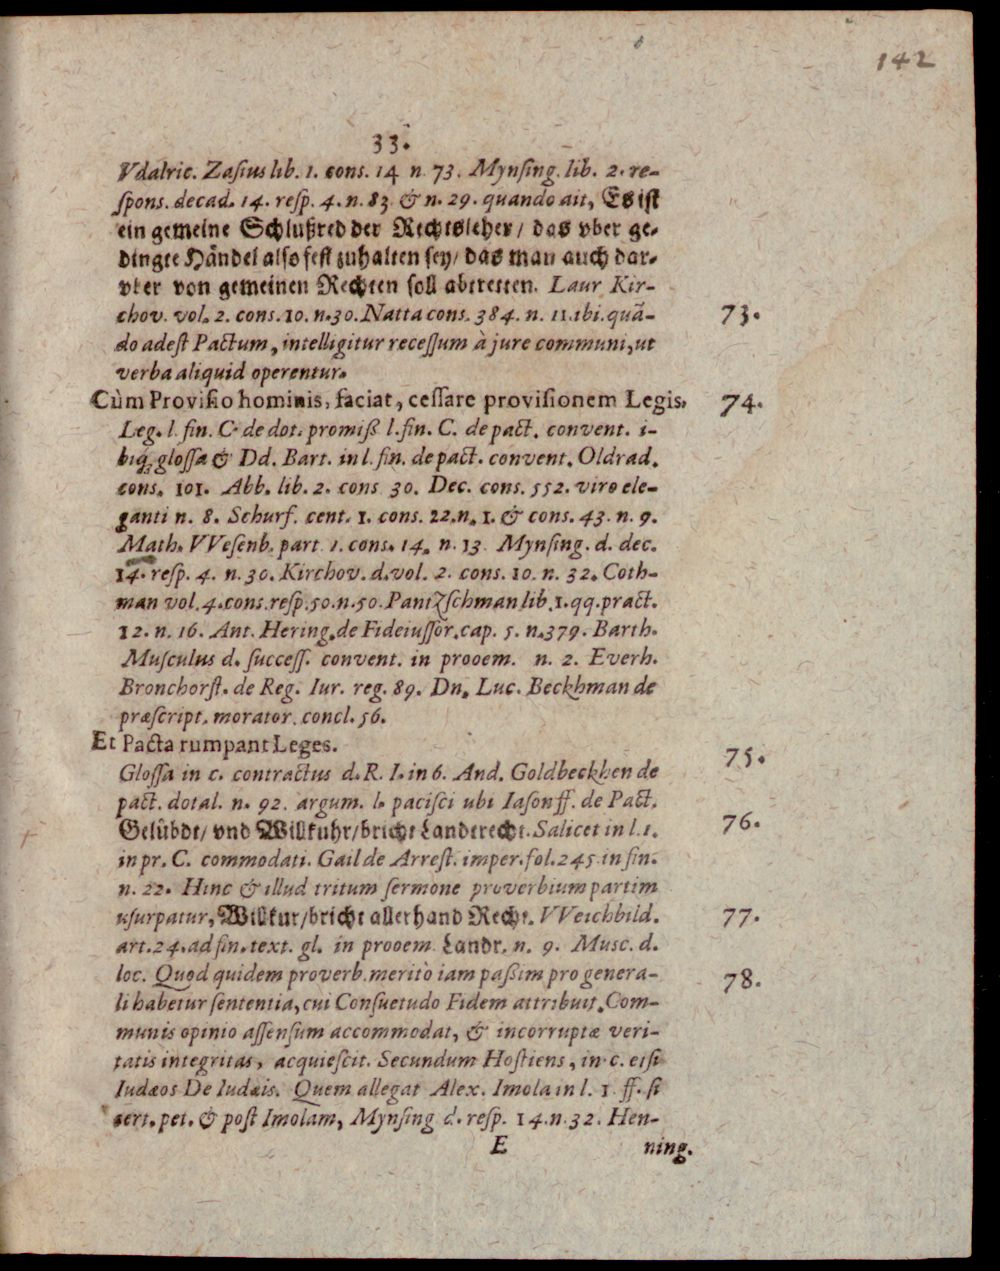 142
33.
Vdalric. Zasius lib. 1. cons. 14 n 73. Mynsing. lib. 2. re-
spons. decad. 14. resp. 4. n. 83 & n. 29. quando ait, Es ist
ein gemeine Schlußred der Rechtsleher / das vber ge-
dingte Händel also fest zuhalten sey / das man auch dar-
vber von gemeinen Rechten soll abtretten. Laur Kir-
chov. vol. 2. cons. 10. n. 30. Natta cons. 384. n. 11. ibi. quã- 73.
do adest Pactum, intelligitur recessum à jure communi, ut
verba aliquid operentur.
Cùm Provisio hominis, faciat, cessare provisionem Legis, 74.
Leg. l. fin. C. de dot. promiß l. fin. C. de pact. convent. i-
biq; glossa & Dd. Bart. in l. fin. de pact. convent. Oldrad.
cons. 101. Abb. lib. 2. cons 30. Dec. cons. 552. viro ele-
ganti n. 8. Schurf. cent. 1. cons. 22. n. 1. & cons. 43. n. 9.
Math. VVesenb. part 1. cons. 14. n. 13 Mynsing. d. dec.
14. resp. 4. n. 30. Kirchov. d. vol. 2. cons. 10. n. 32. Coth-
man vol. 4. cons. resp. 50. n. 50. Pantzschman lib. 1. qq. pract.
12. n. 16. Ant. Hering. de Fideiussor. cap. 5. n. 379. Barth.
Musculus d. success. convent. in prooem. n. 2. Everh.
Bronchorst. de Reg. Iur. reg. 89. Dn. Luc. Beckhman de
præscript. morator. concl. 56.
Et Pacta rumpant Leges. 75.
Glossa in c. contractus d. R. I. in 6. And. Goldbeckhen de
pact. dotal. n. 92. argum. l. pacisci ubi Iason ff. de Pact.
Gelübdt / vnd Willkuhr / bricht Landtrecht. Salicet in l. 1. 76.
in pr. C. commodati. Gail de Arrest. imper. fol. 245 in fin.
n. 22. Hinc & illud tritum sermone proverbium partim
usurpatur, Willkur / bricht allerhand Recht. VVeichbild. 77.
art. 24. ad fin. text. gl. in prooem Landr. n. 9. Musc. d.
loc. Quod quidem proverb. meritò iam paßim pro genera- 78.
li habetur sententia, cui Consuetudo Fidem attribuit, Com-
munis opinio assensum accommodat, & incorruptæ veri-
tatis integritas, acquiescit. Secundum Hostiens, in c. etsi
Iudæos De Iudæis. Quem allegat Alex. Imola in l. 1 ff. si
cert. pet. & post Imolam, Mynsing d. resp. 14. n. 32. Hen-
E ning.